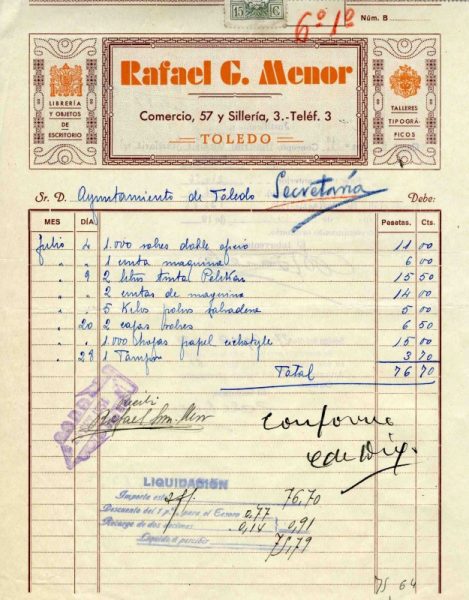 15 C
6º 1º
Núm. B
Rafael G. Menor
Comercio, 57 y Sillería, 3.-Teléf. 3
TOLEDO
LIBRERÍA
Y OBJETOS
DE
ESCRITORIO
TALLERES
TIPOGRÁ-
FICOS
Sr. D. Ayuntamiento de Toledo Secretaría Debe:
MES DÍA Pesetas. Cts.
Julio 4 1.000 sobres doble oficio 11 00
" " 1 cinta maquina 6 00
" 9 2 litros tinta Pelikan 15 50
" " 2 cintas de maquina 14 00
" " 5 Kilos polvos salvadera 5 00
" 20 2 cajas sobres 6 50
" " 1.000 hojas papel ciclostyle 15 00
" 28 1 Tampon 3 70
Total 76 70
Recibí
Rafael Menor
Conforme
LIQUIDACIÓN
Importe esta 76,70
Descuento del 1 p% para el Tesoro 0,77
Recargo de dos décimas 0,14 0,91
Líquido a percibir 75,79
75 64